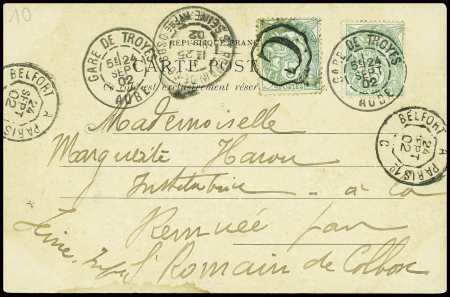 10
RÉPUBLIQUE FRANÇ
CARTE POST
Ce côté est exclusivement réservé
GARE DE TROYES
5E 24
SEPT
02
AUBE
GARE DE TROYES
5E 24
SEPT
02
AUBE
SEINE-INFRE
11 25
02
BELFORT A PARIS
24
SEPT
02
BELFORT A PARIS 1º
24
SEPT
02
C
Mademoiselle
Marguerite Harou
Institutrice à la
Remuée par
St Romain de Colbosc
Seine Infre